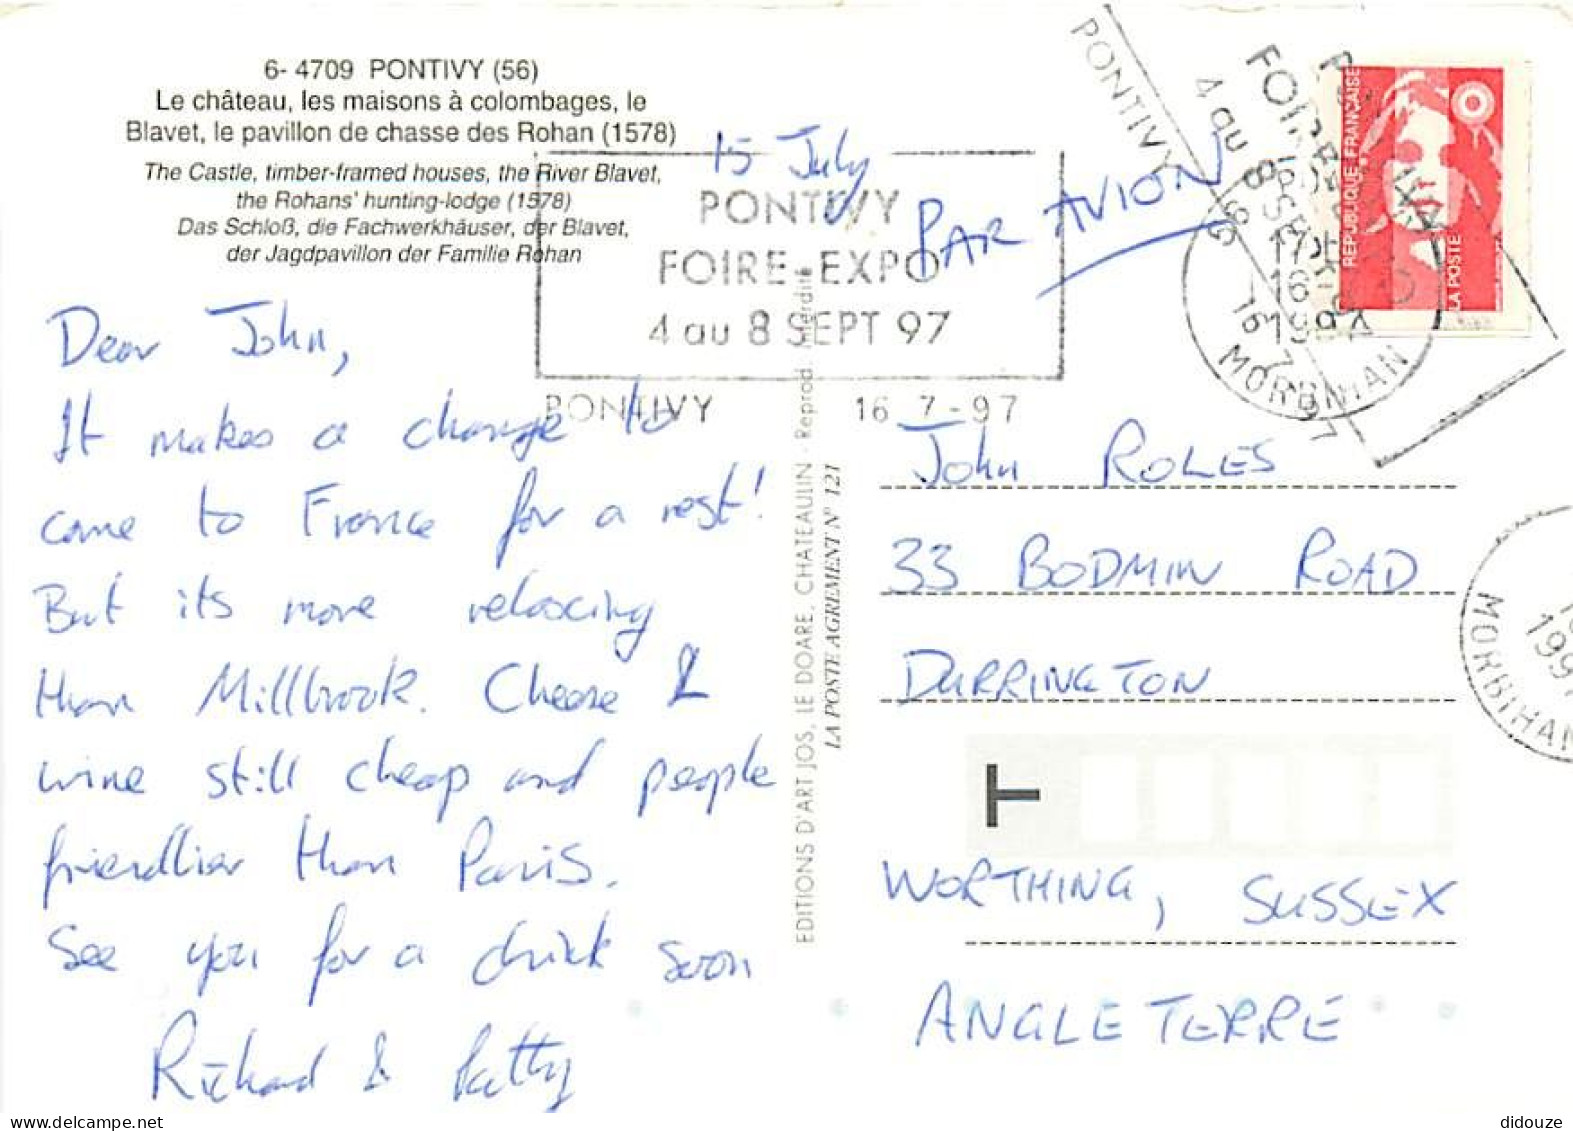 6- 4709 PONTIVY (56)
Le château, les maisons à colombages, le
Blavet, le pavillon de chasse des Rohan (1578)
The Castle, timber-framed houses, the River Blavet,
the Rohans' hunting-lodge (1578)
Das Schloß, die Fachwerkhäuser, der Blavet,
der Jagdpavillon der Familie Rohan
15 July
PAR AVION
PONTIVY
FOIRE-EXPO
4 au 8 SEPT 97
PONTIVY 16-7-97
Dear John,
It makes a change to
come to France for a rest!
But its more relaxing
than Millbrook. Cheese &
wine still cheap and people
friendlier than Paris.
See you for a drink soon
Richard & Patty
EDITIONS D'ART JOS, LE DOARE, CHATEAULIN - Reprod. interdite
LA POSTE AGREMENT N° 121
PONTIVY
4 au 8
FOIRE
16-7-97
MORBIHAN
RÉPUBLIQUE FRANÇAISE
LA POSTE
John ROLES
33 BODMIN ROAD
DURRINGTON
T
WORTHING, SUSSEX
ANGLETERRE
1997
MORBIHAN
didouze